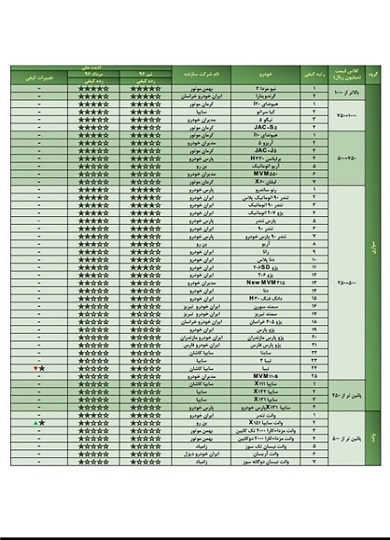 گروه کلاس قیمت (میلیون ریال) رتبه کیفی خودرو نام شرکت سازنده تیر ۹۶ مرداد ۹۶ تغییرات کیفی
رده کیفی رده کیفی
سواری
بالاتر از ۱۰۰۰
۱ نیو مزدا ۳ بهمن موتور
۲ گرندویتارا ایران خودرو خراسان
۷۵۰-۱۰۰۰
۱ هیوندای i20 کرمان موتور
۲ کیا سراتو سایپا
۳ تیگو ۵ مدیران خودرو
۴ JAC-S5 کرمان موتور
۵۰۰-۷۵۰
۱ هیوندای i10 کرمان موتور
۲ آریزو ۵ مدیران خودرو
۳ JAC-J5 کرمان موتور
۴ برلیانس H220 پارس خودرو
۵ آریو اتوماتیک بن رو
۶ MVM550 مدیران خودرو
۷ لیفان X60 کرمان موتور
۲۵۰-۵۰۰
۱ رنو ساندرو پارس خودرو
۲ تندر ۹۰ اتوماتیک پلاس ایران خودرو
۳ تندر ۹۰ اتوماتیک ایران خودرو
۴ پژو ۲۰۷ اتوماتیک ایران خودرو
۵ پارس تندر ایران خودرو
۶ تندر ۹۰ ایران خودرو
۷ تندر ۹۰ پارس خودرو پارس خودرو
۸ آریو بن رو
۹ رانا ایران خودرو
۱۰ دنا پلاس ایران خودرو
۱۱ پژو 206SD ایران خودرو
۱۲ پژو ۲۰۶ ایران خودرو
۱۳ New MVM315 مدیران خودرو
۱۴ دنا ایران خودرو
۱۵ دانگ فنگ H30 ایران خودرو
۱۶ سمند سورن ایران خودرو تبریز
۱۷ سمند تبریز ایران خودرو تبریز
۱۸ پژو ۴۰۵ خراسان ایران خودرو خراسان
۱۹ پژو پارس ایران خودرو
۲۰ پژو پارس مازندران ایران خودرو مازندران
۲۱ پژو پارس فارس ایران خودرو فارس
۲۲ ساینا سایپا کاشان
۲۳ تیبا ۲ سایپا
۲۴ تیبا سایپا کاشان
۲۵ MVM110-S مدیران خودرو
پائین تر از ۲۵۰
۱ سایپا X111 سایپا کاشان
۲ سایپا X132 سایپا
۳ سایپا X131 سایپا
۴ سایپا X131 پارس خودرو پارس خودرو
وانت
پائین تر از ۵۰۰
۱ وانت تندر ایران خودرو
۲ وانت سایپا X151 بن رو
۳ وانت مزدا+کارا ۲۰۰۰ تک کابین بهمن موتور
۴ وانت مزدا+کارا ۲۰۰۰ دوکابین بهمن موتور
۵ وانت نیسان تک سوز زامیاد
۶ وانت آریسان ایران خودرو دیزل
۷ وانت نیسان دوگانه سوز زامیاد